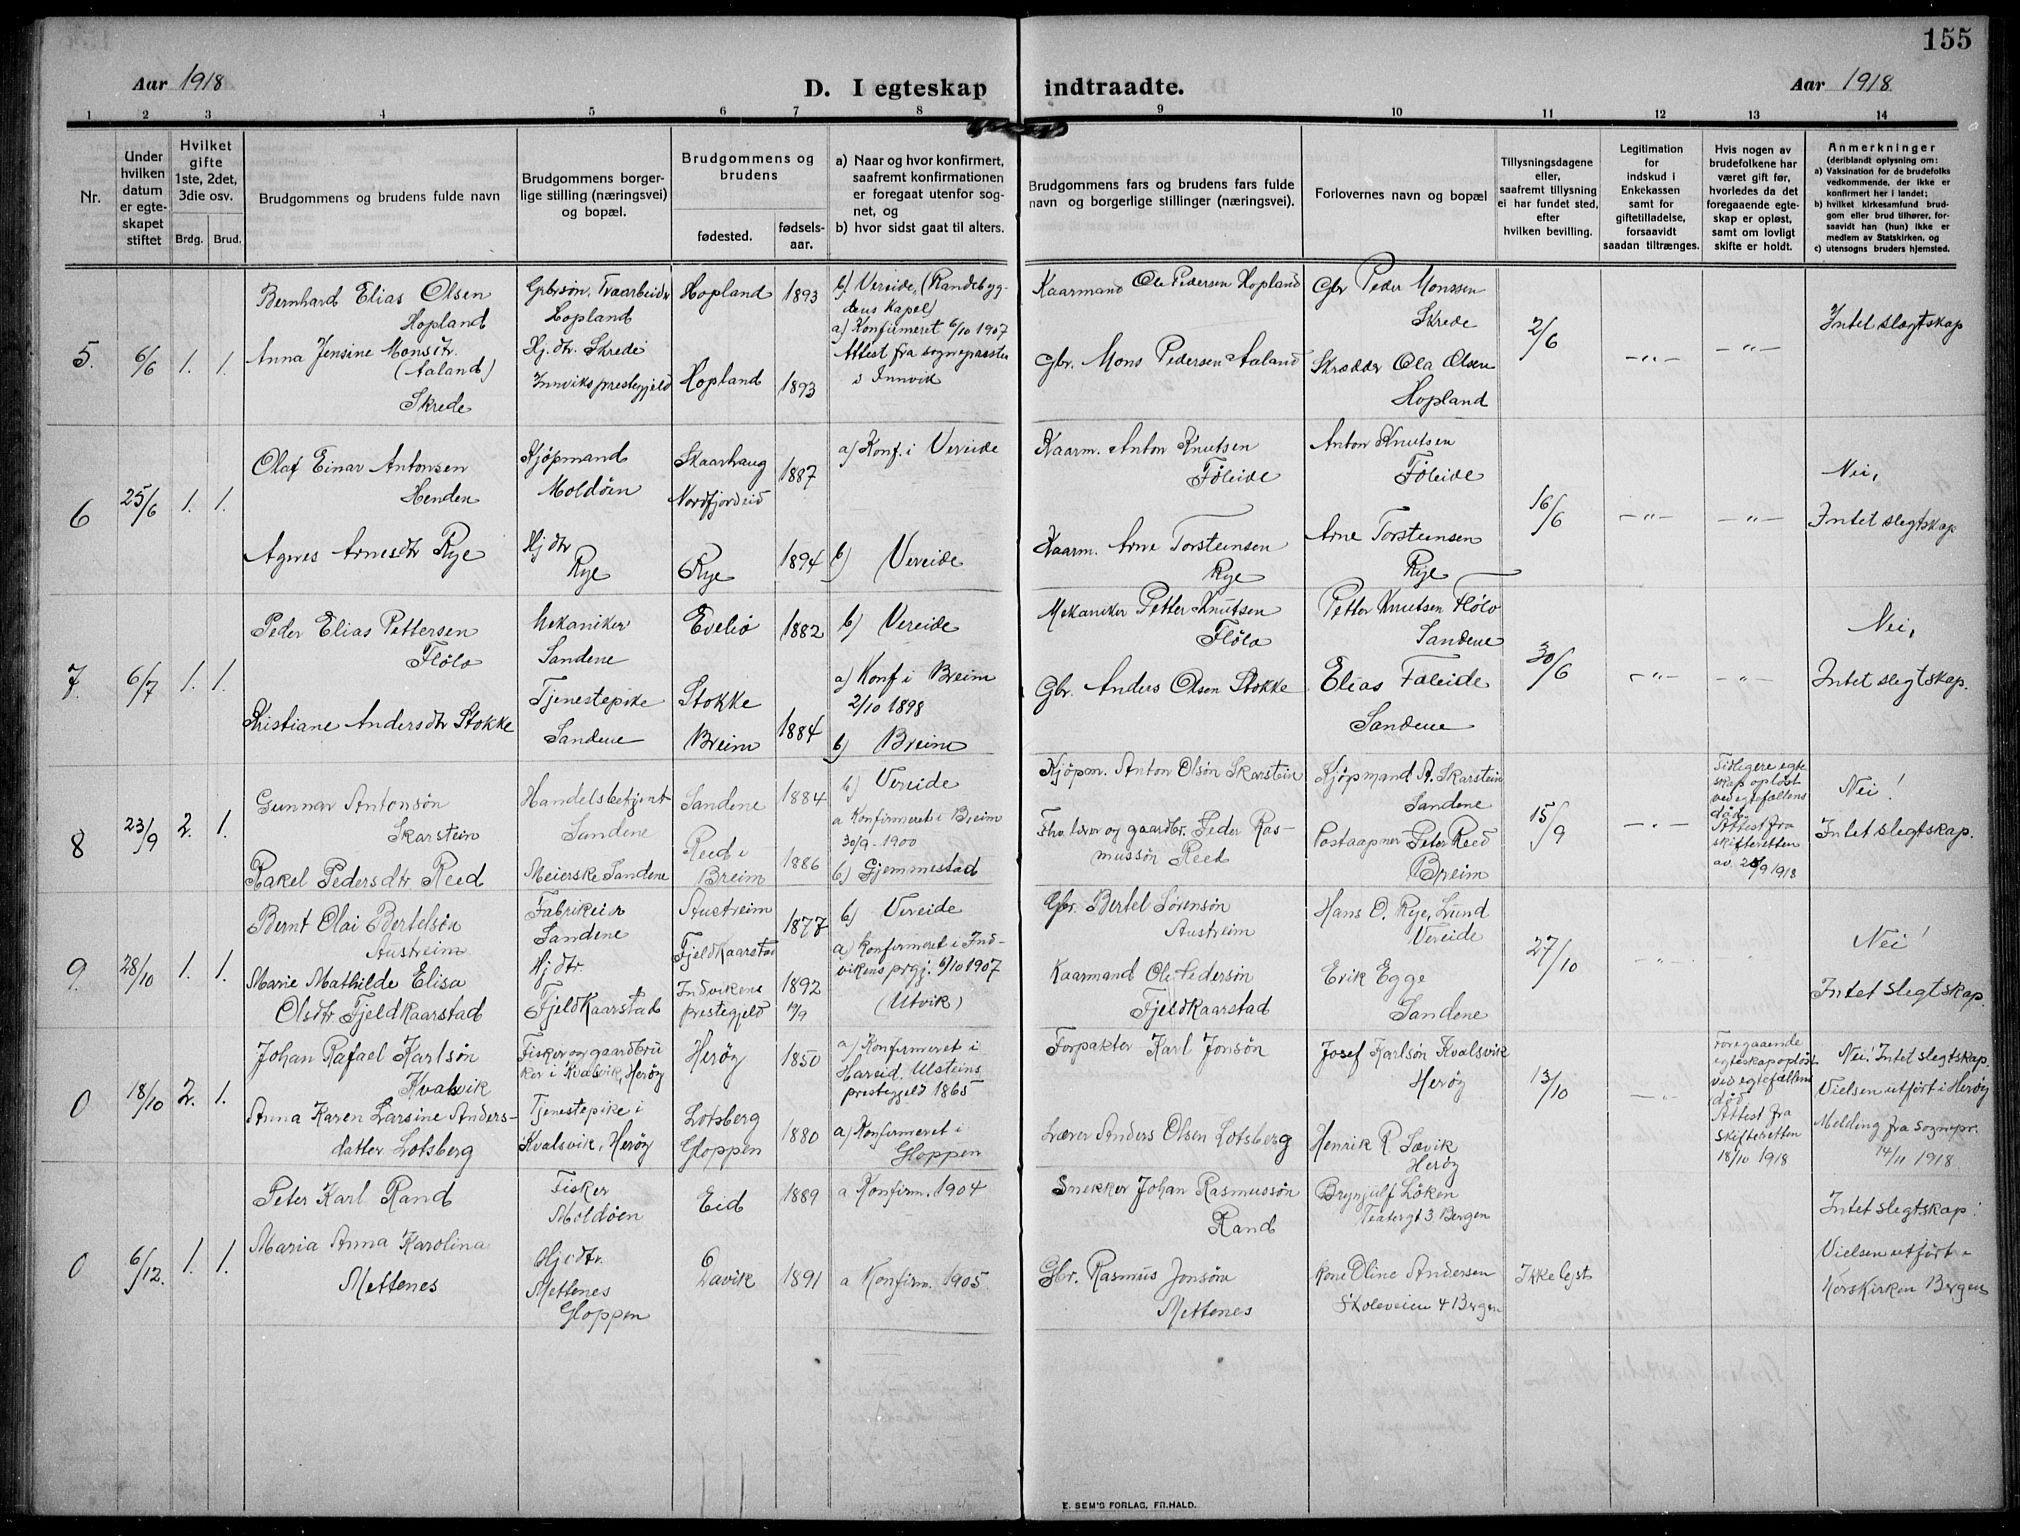 155
Aar 1918
D. I egteskap indtraadte.
Aar 1918
1 2 3 4 5 6 7 8 9 10 11 12 13 14
Nr.
Under hvilken datum er egteskapet stiftet
Hvilket gifte 1ste, 2det, 3die osv.
Brdg. Brud.
Brudgommens og brudens fulde navn
Brudgommens borgerlige stilling (næringsvei) og bopæl.
Brudgommens og brudens
fødested.
fødselsaar.
a) Naar og hvor konfirmert, saafremt konfirmationen er foregaat utenfor sognet, og
b) hvor sidst gaat til alters.
Brudgommens fars og brudens fars fulde navn og borgerlige stillinger (næringsvei).
Forlovernes navn og bopæl
Tillysningsdagene eller, saafremt tillysning ei har fundet sted, efter hvilken bevilling.
Legitimation for indskud i Enkekassen samt for giftetilladelse, forsaavidt saadan tiltrænges.
Hvis nogen av brudefolkene har været gift før, hvorledes da det foregaaende egteskap er opløst, samt om lovligt skifte er holdt.
Anmerkninger
(deriblandt oplysning om:
a) Vaksination for de brudefolks vedkommende, der ikke er konfirmert her i landet;
b) hvilket kirkesamfund brudgom eller brud tilhører, forsaavidt han (hun) ikke er medlem av Statskirken, og
c) utensogns bruders hjemsted.
5. 6/6 1. 1.
Bernhard Elias Olsen
Hopland
Anna Jensine Monsdtr.
(Aaland)
Skrede
Gbrsøn. Traarbeider
Hopland
Hj. dtr. Skrede
Innviks prestegjeld
Hopland 1893
Hopland 1893
b) Vereide, (Randebyg-
dens kapel)
a) Konfirmeret 6/10 1907
Attest fra sognepresten
i Innvik
Kaarmand Ole Pedersen Hopland
Gbr. Mons Pedersen Aaland
Gbr Peder Monssen
Skrede
Skrædder Ola Olsen
Hopland
2/6
-„- -„-
Intet slegtskap
6 25/6 1. 1.
Olaf Einar Antonsen
Henden
Agnes Arnesdtr Rye
Kjøpmand
Moldøen
Hj dtr
Rye
Skaarhaug
Nordfjordeid 1887
Rye 1894
a) Konf. i Vereide
b) Vereide
Kaarm. Anton Knutsen
Føleide
Kaarm. Arne Torsteinsen
Rye
Anton Knutsen
Føleide
Arne Torsteinsen
Rye
16/6
-„- -„-
Nei,
Intet slegtskap
7. 6/7 1. 1.
Peder Elias Pettersen
Fløla
Kristiane Andersdtr Stokke
Mekaniker
Sandene
Tjenestepike
Sandene
1882
Stokke
Breim 1884
b) Vereide
a) Konf i Breim
2/10 1898
b) Breim
Mekaniker Petter Knutsen
Fløla
Gbr. Anders Olsen Stokke
Petter Knutsen Fløla
Sandene
Elias Føleide
Sandene
30/6
-„- -„-
Nei,
Intet slegtskap.
8 23/9 2. 1.
Gunnar Antonsøn
Skarstein
Rakel Pedersdtr Reed
Handelsbetjent
Sandene
Meierske Sandene
Sandene 1884
Reed i
Breim 1886
b) Vereide
a Konfirmeret i Breim
30/9 - 1900
b) Gjemmestad
Kjøpm. Anton Olsøn Skarstein
Fhv. lærer og gaardbr. Peder Ras-
mussøn Reed
Kjøpmand A. Skarstein
Sandene
Postaapner Peter Reed
Breim
15/9
-„-
Tidligere egte
skap opløst
ved egtefællens
død.
Attest fra
skifteretten
av. 20/9 1918
Nei!
Intet slegtskap.
9. 28/10 1. 1.
Bernt Olai Bertelsøn
Austreim
Marie Mathilde Elisa
Olsdtr Fjeldkaarstad
Fabrikeier
Sandene
Hj dtr.
Fjeldkaarstad
Austreim 1877
Fjeldkaarstad
Indvikens
prestegjeld
1892
19/9
b) Vereide
a) Konfirmeret i Ind-
vikens prgj. 6/10 1907
(Utvik)
Gbr. Bertel Sørensøn
Austreim
Kaarmand Ole Pedersøn
Fjeldkaarstad
Hans O. Rye, Lund
Vereide
Erik Egge
Sandene
27/10
Nei!
Intet slegtskap.
0 18/10 2. 1.
Johan Rafael Karlsøn
Kvalsvik
Anna Karen Larsine Anders-
datter Lotsberg
Fisker og gaardbru
ker i Kvalsvik, Herøy
Tjenestepike i
Kvalsvik, Herøy
Herøy 1850
Lotsberg
Gloppen 1880
a) Konfirmeret i
Hareid. Ulsteins
prestegjeld 1865
a) Konfirmeret i
Gloppen
Forpakter Karl Jonsøn
Lærer Anders Olsen Lotsberg
Josef Karlsøn Kvalsvik
Herøy
Henrik P. Sævik
Herøy
13/10
-„-
Foregaaende
egteskap opløst
ved egtefællens
død
Attest fra
skifteretten
18/10 1918
Nei! Intet slegtskap.
Vielsen utført i Herøy
Melding fra sognepr.
14/11 1918
0 6/12. 1. 1.
Peter Karl Rand
Maria Anna Karolina
Mettenes
Fisker
Moldøen
Hj dtr.
Mettenes
Gloppen
Eid 1889
Lavik 1891
a Konfirm. 1904
a Konfirm. 1905.
Snekker Johan Rasmussøn
Rand
Gbr. Rasmus Jonsøn
Mettenes
Brynjulf Løken
Teatergt 3 Bergen
Kone Oline Andersen
Skoleveien 4 Bergen
Ikke lyst
Intet slegtskap!
Vielsen utført i
Korskirken Bergen
E. SEM'S FORLAG, FR.HALD.